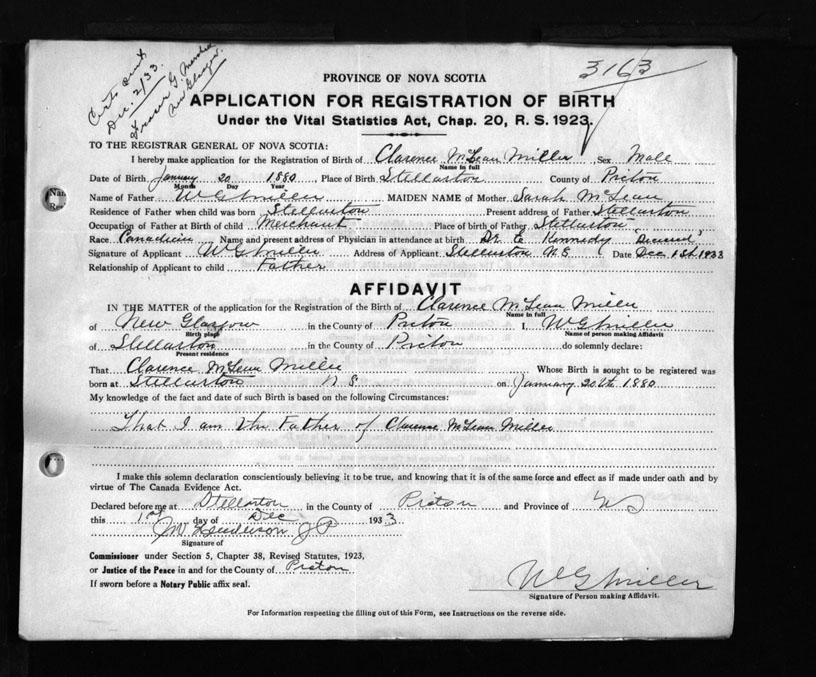 Certs sent
Dec. 2/33.
Fraser G.
New Glasgow.
3163
PROVINCE OF NOVA SCOTIA
APPLICATION FOR REGISTRATION OF BIRTH
Under the Vital Statistics Act, Chap. 20, R. S. 1923.
TO THE REGISTRAR GENERAL OF NOVA SCOTIA:
I hereby make application for the Registration of Birth of Clarence McLean Miller Sex Male
Name in full
Date of Birth January 20 1880 Place of Birth Stellarton County of Pictou
Month Day Year
Name of Father W G Miller MAIDEN NAME of Mother Sarah McLean
Residence of Father when child was born Stellarton Present address of Father Stellarton
Occupation of Father at Birth of child Merchant Place of birth of Father Stellarton
Race Canadian Name and present address of Physician in attendance at birth Dr E Kennedy Deceased
Signature of Applicant W G Miller Address of Applicant Stellarton N S Date Dec 1st 1933
Relationship of Applicant to child Father
AFFIDAVIT
IN THE MATTER of the application for the Registration of the Birth of Clarence McLean Miller
Name in full
of New Glasgow in the County of Pictou I, W G Miller
Birth place Name of person making Affidavit
of Stellarton in the County of Pictou do solemnly declare:
Present residence
That Clarence McLean Miller Whose Birth is sought to be registered was
born at Stellarton N S. on January 20th 1880
My knowledge of the fact and date of such Birth is based on the following Circumstances:
That I am the Father of Clarence McLean Miller
I make this solemn declaration conscientiously believing it to be true, and knowing that it is of the same force and effect as if made under oath and by
virtue of The Canada Evidence Act.
Declared before me at Stellarton in the County of Pictou and Province of N S
this 1st day of Dec 1933
J W Henderson J P
Signature of
Commissioner under Section 5, Chapter 38, Revised Statutes, 1923,
or Justice of the Peace in and for the County of Pictou
If sworn before a Notary Public affix seal.
W G Miller
Signature of Person making Affidavit.
For Information respecting the filling out of this Form, see Instructions on the reverse side.